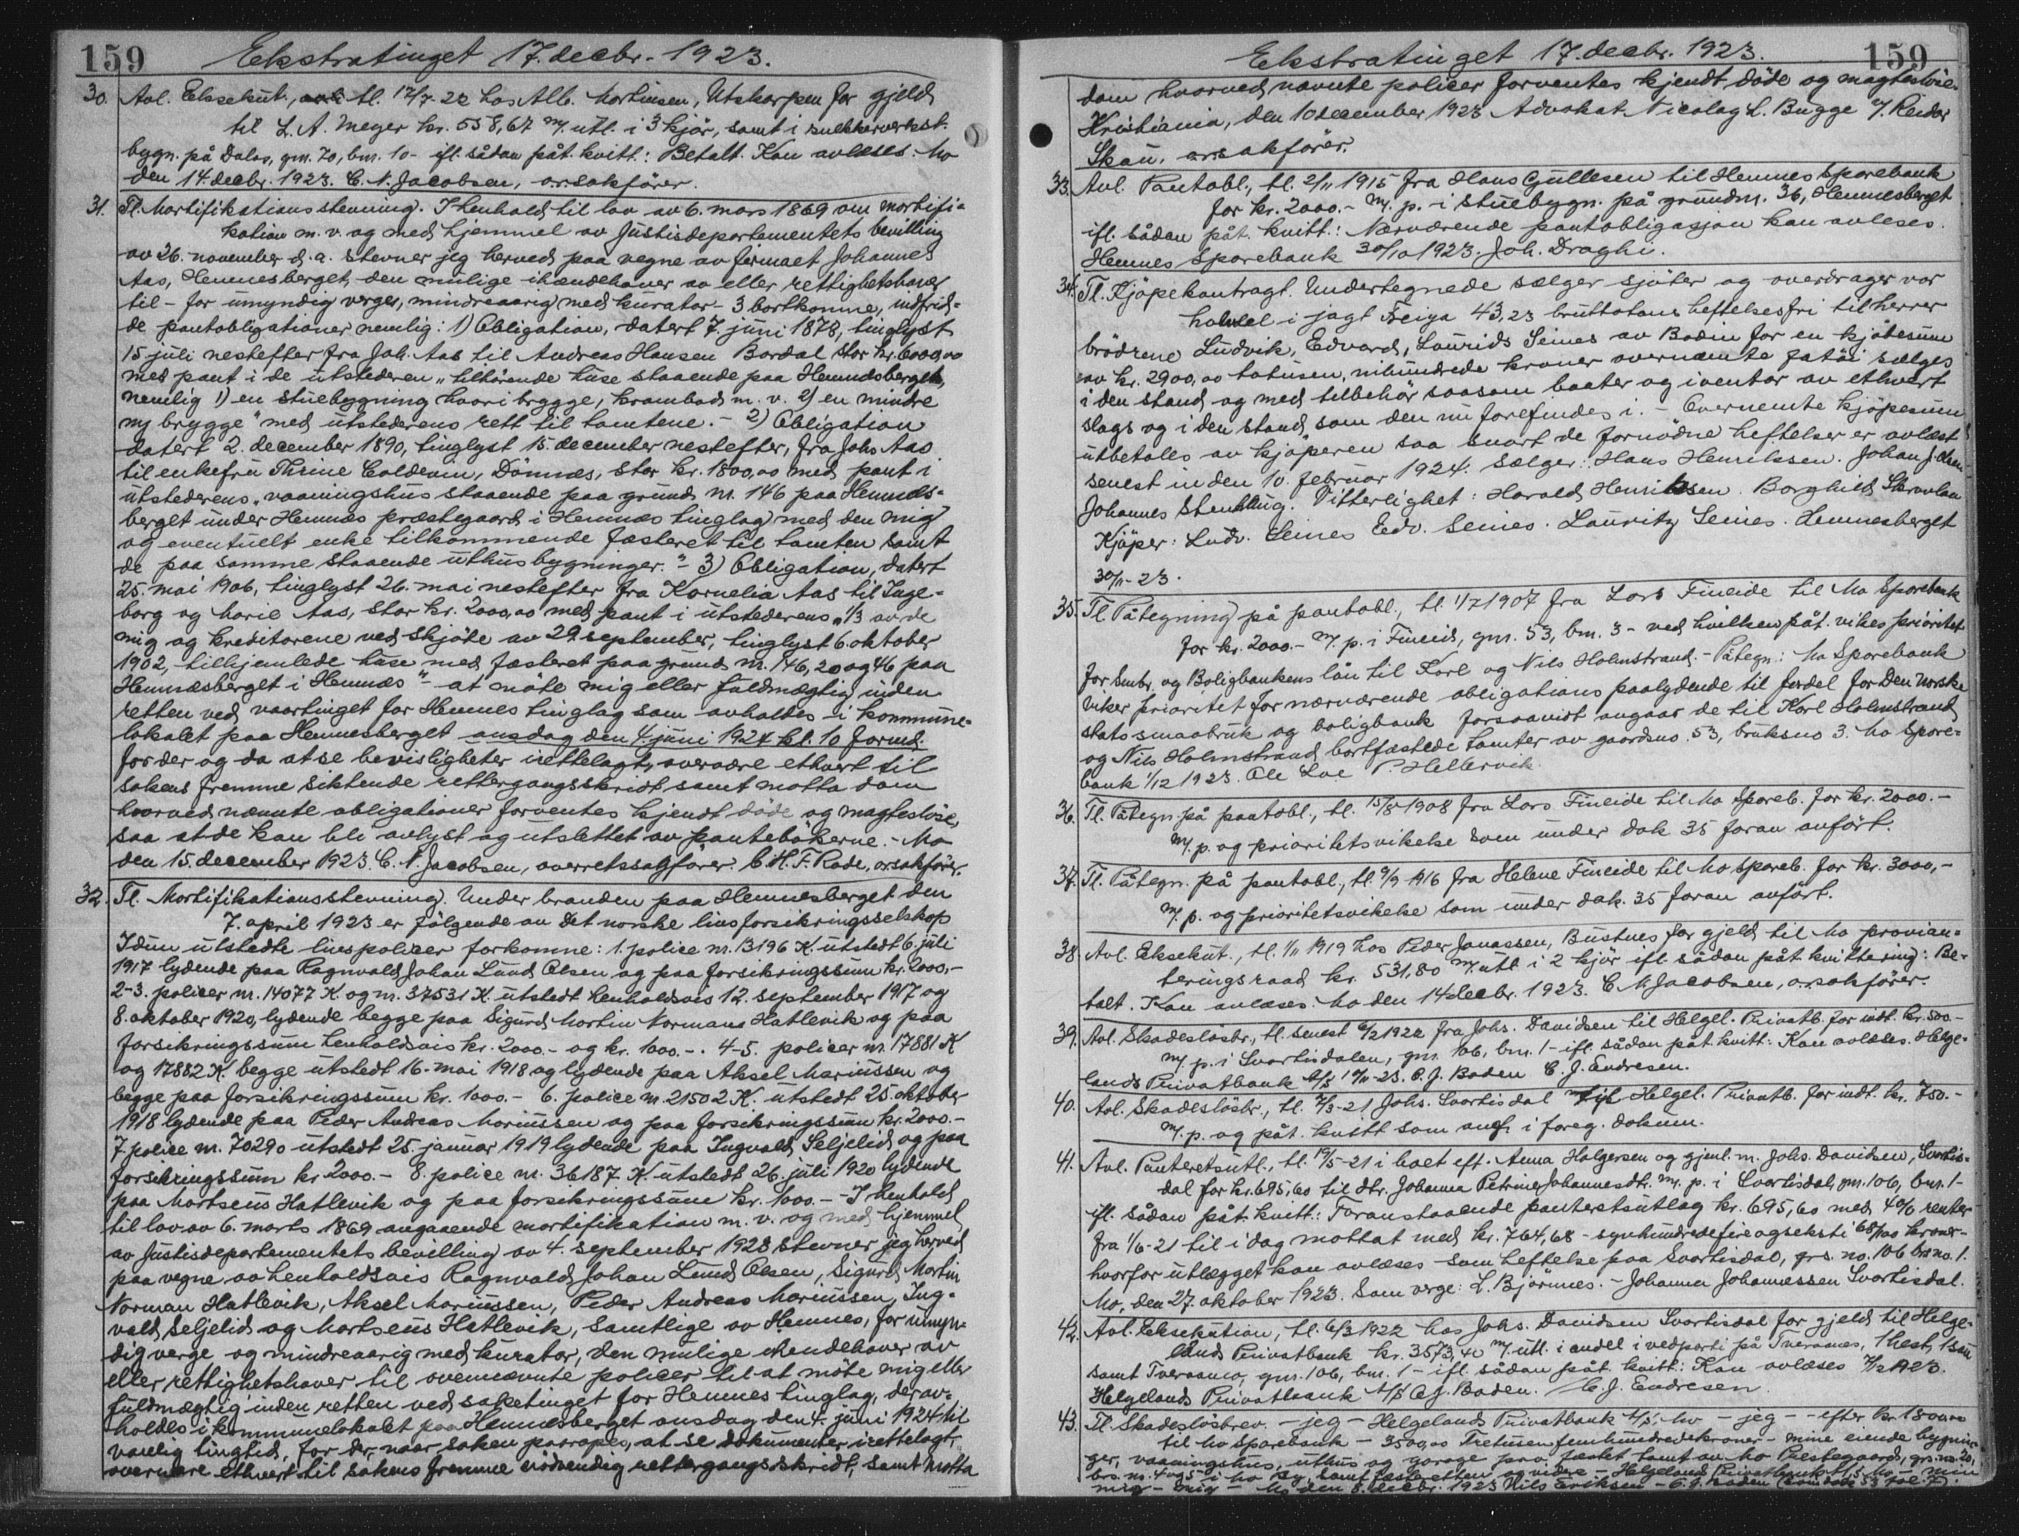 159
Ekstratinget 17. decbr. 1923.
30. Avl. Eksekut., tl. 12/7 22 hos Alb. Martinsen, Utskarpen for gjeld
til L. A. Meyer kr. 558,67 m/ utl. i 3 kjør, samt i snekkerverkst.
bygn. på Dalos, gnr. 70, bnr. 10 - ifl. sådan påt. kvitt: Betalt. Kan avlæses. Mo
den 14. decbr. 1923. C. N. Jacobsen, o.r.sakfører.
31. Tl. Mortifikationsstevning. I henhold til lov av 6. mars 1869 om mortifi=
kation m. v. og med hjemmel av Justisdepartementets bevilling
av 26. november d. a. stevner jeg herved paa vegne av firmaet Johannes
Aas, Hemnesberget, den mulige ihændehaver av eller rettighetshaver
til - for umyndig verger, mindreaarig med kurator - 3 bortkomne, indfrid=
de pantobligationer nemlig: 1) Obligation, datert 7. juni 1878, tinglyst
15 juli nestefter fra Joh. Aas til Andreas Hansen Bardal stor kr. 6000,00
med pant i de utstederen "tilhørende huse staaende paa Hemnesberget,
nemlig 1) en stuebygning hvori brygge, krambod m. v. 2) en mindre
ny brygge" med utstederens rett til tomtene. - 2) Obligation
datert 2. december 1890, tinglyst 15 december nestefter, fra Johs Aas
til enkefru Thrine Coldevin, Dønnæs, stor kr. 1800,00 med pant i
utstederens "vaaningshus staaende paa grund nr. 146 paa Hemnæs=
berget under Hemnæs præstegaard i Hemnæs tinglag med den mig
og eventuelt enke tilkommende fæsteret til tomten samt
de paa samme staaende uthusbygninger." - 3) Obligation, datert
25. mai 1906, tinglyst 26. mai nestefter fra Kornelia Aas til Inge=
borg og Marie Aas, stor kr. 2000,00 med pant i utstederens "1/3 av de
mig og kreditorene ved skjøte av 29. september, tinglyst 6 oktober
1902, tilhjemlede huse med fæsteret paa grund nr. 146, 20 og 46 paa
Hemnæsberget i Hemnæs" - at møte mig eller fuldmægtig inden
retten ved vaartinget for Hemnes tinglag som avholdes i kommune=
lokalet paa Hemnesberget onsdag den 4 juni 1924 kl. 10 formd.
for der og da at se bevisligheter irettelagt, overvære ethvert til
sakens fremme siktende rettergangsskridt samt motta dom
hvorved nævnte obligationer forventes kjendt døde og magtesløse,
saa at de kan bli avlyst og utslettet av pantebøkerne. - Mo
den 15. december 1923 C. N. Jacobsen, overretssagfører C. H. F. Rode, o.r.sakfører.
32. Tl. Mortifikationsstevning. Under branden paa Hemnesberget den
7. april 1923 er følgende av Det norske livsforsikringsselskap
Idun utstedte livspoliser forkomne: 1. police nr. 13196 K. utstedt 6 juli
1917 lydende paa Ragnvald Johan Lund Olsen og paa forsikringssum kr. 2000,-
2-3. policer nr. 14077 K og nr. 37531 K. utstedt henholdsvis 12. september 1917 og
8. oktober 1920, lydende begge paa Sigurd Martin Norman Hatlevik og paa
forsikringssum henholdsvis kr. 2000.- og kr. 1000.-. 4-5. policer nr. 17881 K
og 17882 K. begge utstedt 16. mai 1918 og lydende paa Aksel Mariussen og
begge paa forsikringssum kr. 1000.- 6. police nr. 21502 K. utstedt 25. oktober
1918 lydende paa Peder Andreas Mariussen og paa forsikringssum kr. 2000.-
7. police nr. 70290 utstedt 25. januar 1919 lydende paa Ingvald Seljelid og paa
forsikringssum kr. 2000.- 8. police nr. 36187 K. utstedt 26. juli 1920 lydende
paa Martseus Hatlevik og paa forsikringssum kr. 1000.- I henhold
til lov av 6. marts 1869 angaaende mortifikation m. v. og med hjemmel
av Justisdepartementets bevilling av 4. september 1923 stevner jeg herved
paa vegne av henholdsvis Ragnvald Johan Lund Olsen, Sigurd Martin
Norman Hatlevik, Aksel Mariussen, Peder Andreas Mariussen, Ing=
vald Seljelid og Martseus Hatlevik, samtlige av Hemnes, for umyn=
dig verge og mindreaarig med kurator, den mulige ihendehaver av
eller rettighetshaver til ovennævnte policer til at møte mig eller
fuldmægtig inden retten ved saketinget for Hemnes tinglag, der av=
holdes i kommunelokalet paa Hemnæsberget onsdag den 4. juni 1924 til
vanlig tingtid, for der, naar saken paaropes, at se dokumenter irettelagt,
overvære ethvert til sakens fremme nødvendig rettergangsskridt, samt motta
159
Ekstratinget 17. decbr. 1923.
dom hvorved nævnte policer forventes kjendt døde og magtesløse.
Kristiania, den 10 december 1923 Advokat Nicolay L. Bugge v/ Reidar
Skau, o.r.sakfører.
33. Avl. Pantobl., tl. 2/11 1915 fra Hans Gullesen til Hemnes Sparebank
for kr. 2000.- m. p. i stuebygn. på grundnr. 36, Hemnesberget
ifl. sådan påt. kvitt: Nærværende pantobligasjon kan avleses.
Hemnes Sparebank 30/10 1923. Joh. Draghi.
34. Tl. Kjøpekontragt. Undertegnede sælger skjøter og overdrager vor
halvdel i jagt Freiya 43,23 bruttotons heftelsesfri til herrer
brødrene Ludvik, Edvard, Laurids Seines av Bodin for en kjøbesum
av kr. 2900,00 totusen, nihundrede kroner overnævnte fatøi sælges
i den stand og med tilbehør saasom baater og iventar av ethvert
slags og i den stand som den nu forefindes i. - Overnemte kjøpesum
utbetales av kjøperen saa snart de fornødne heftelser er avlæst
senest inden 10. februar 1924. Sælger: Hans Henrikssen. Johan J. Olsen
Johannes Stenhaug. Vitterlighet: Harald Henriksen. Borghild
Kjøper: Ludv. Seines Edv. Seines. Lauritz Seines. Hemnesberget
30/11-23.
35. Tl. Påtegning på pantobl., tl. 1/7 1907 fra Lars Fineide til Mo Sparebank
for kr. 2000.- m. p. i Fineid, gnr. 53, bnr. 3 - ved hvilken påt. vikes prioritet
for Smbr. og Boligbankens lån til Karl og Nils Holmstrand. - Påtegn: Mo Sparebank
viker prioritet for nærværende obligations paalydende til fordel for Den norske
stats smaabruk og boligbank forsaavidt angaar de til Karl Holmstrand
og Nils Holmstrand bortfæstede tomter av gaardsno. 53, bruksno 3. Mo Spare=
bank 1/12 1923. Ole Loe P. Hellervik
36. Tl. Påtegn. på pantobl., tl. 15/8 1908 fra Lars Fineide til Mo Spareb. for kr. 2000.-
m. p. og prioritetsvikelse som under dok 35 foran anført.
37. Tl. Påtegn. på pantobl., tl. 9/9 1916 fra Helene Fineide til Mo Spareb. for kr. 3000,-
m. p. og prioritetsvikelse som under dok. 35 foran anført.
38. Avl. Eksekut., tl. 1/11 1919 hos Peder Jonassen, Bustnes for gjeld til Mo provian=
teringsraad kr. 531,80 m/ utl i 2 kjør ifl sådan påt. kvittering: Be=
talt. Kan avlæses. Mo den 14 decbr. 1923. C N Jacobsen, o.r.sakfører.
39. Avl. Skadesløsbr., tl. senest 6/2 1922 fra Johs. Davidsen til Helgel. Privatb. for indt. kr. 500.-
m. p. i Svartisdalen, gnr. 106, bnr. 1 - ifl. sådan påt. kvitt: Kan avlæses. Helge=
lands Privatbank A/S 19/11-23. C. J. Baden C. J. Endresen.
40. Avl. Skadesløsbr., tl. 7/3-21 Johs. Svartisdal til Helgel. Privatb. for indt. kr. 750.-
m. p. og påt. kvitt som anf. i foreg. dokum.
41. Avl. Panteretsutl., tl. 19/5-21 i boet eft. Anna Holgersen og gjenl. m. Johs. Davidsen, Svartis=
dal for kr. 695,60 til dtr. Johanna Petrine Johannesdtr. m. p. i Svartisdal, gnr. 106, bnr. 1-
ifl. sådan påt. kvitt: Foranstaaende panteretsutlag kr. 695,60 med 4% renter
fra 1/6-21 til i dag mottat med kr. 764,68 - syvhundredefireogseksti 68/100 kroner -
hvorfor utlægget kan avlæses som heftelse paa Svartisdal, grs. no. 106 brs no. 1.
Mo, den 27. oktober 1923. Som verge: L. Bjørnnes. - Johanna Johannessen Svartisdal.
42. Avl. Eksekution, tl. 6/3 1922 hos Johs. Davidsen Svartisdal for gjeld til Helge=
lands Privatbank kr. 3573,40 m/ utl. i andel i vedparti på Tveraanes, 1 hest, 1 sau
samt Tveraamo, gnr. 106, bnr. 1 - ifl. sådan påt. kvitt: Kan avlæses
Helgelands Privatbank A/S C. J. Baden. C. J. Endresen
43. Tl. Skadesløsbrev. - jeg - Helgelands Privatbank A/S, Mo - jeg - - efter kr. 1800,00
til Mo Sparebank - 3500,00 Tretusenfemhundredekroner - mine eiende bygnin=
ger, vaaningshus, uthus og garage paa fæstet tomt av Mo Prestegaard, grs. no. 20,
brs. nr. 4 og 5 i Mo By, samt fæsteretten og videre - Helgelands Privatbank A/S Mo - min
mig - mig - Mo den 8. decbr. 1923 Nils Eriksen - C. J. Baden